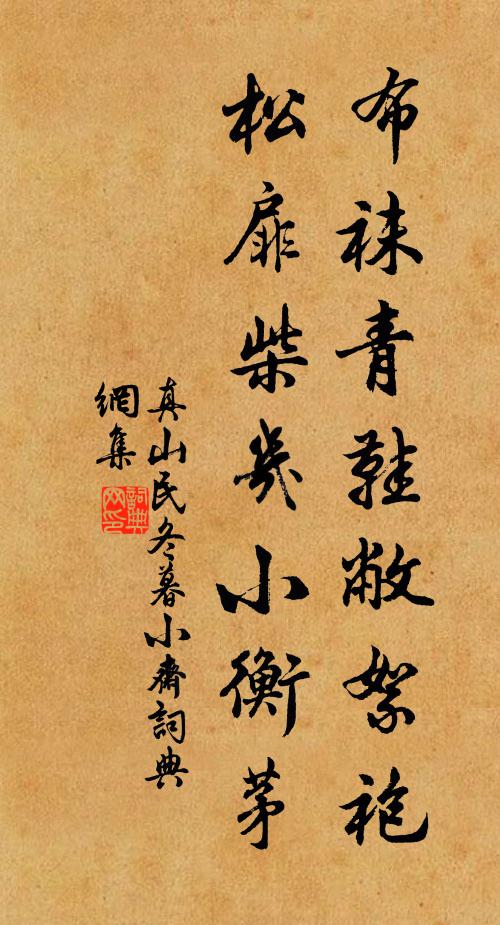 布袜青鞋敝絮袍
松扉柴幾小衡茅
真山民冬暮小齋詞典
網集
詞典
网印